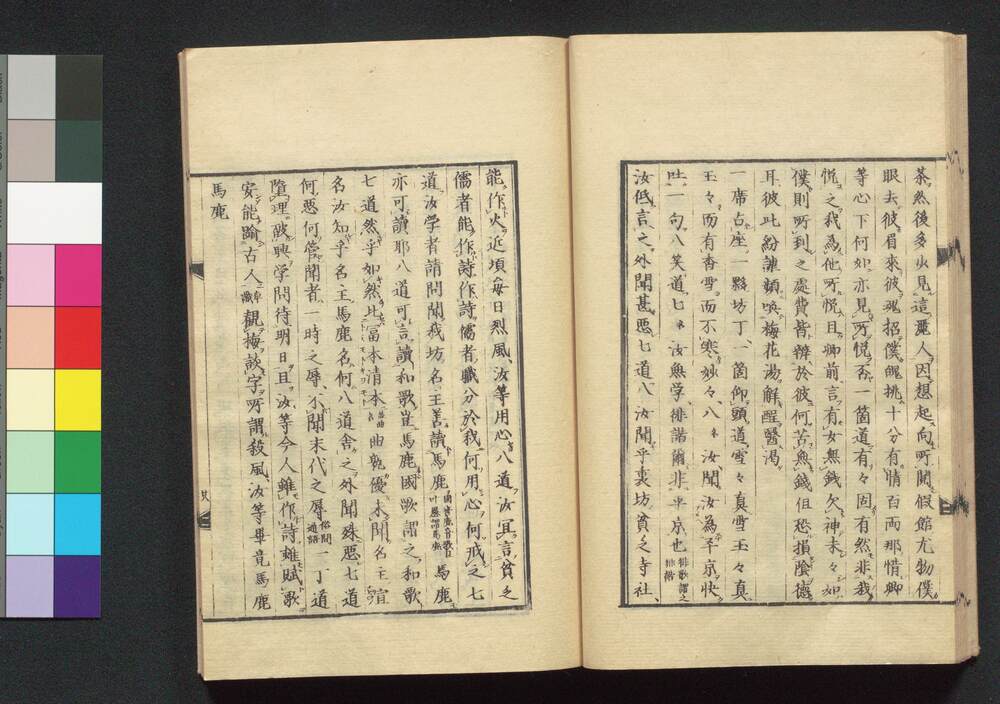 茶然後多火見這麗人因想起向所聞假館尤物僕
眼去彼眉來彼魂招僕魄挑十分有情百両那惜卿
等心下何如亦見所悦否一箇道有々固有然非我
悦之我為他所悦且卿前言有女無錢欠神未々如
僕則所到之處費皆辨於彼何苦無錢但恐損陰德
耳彼此紛謔頻喚梅花湯解酲醫渇
一席占座一夥坊丁一箇仰頭道雪々真雪玉々真
玉々而有香雪而不寒妙々八 汝聞汝為平京快
吐一句八笑道七 汝無学俳諧爾非平京也俳歌謂之俳諧
汝低言之外聞甚惡七道八 汝聞乎裏坊貧之寺社
能作火近頃毎日烈風汝等用心八道汝冥言貧之
儒者能作詩作詩儒者職分於我何用心何戒之七
道汝学者請問聞我坊名主善讀馬鹿 馬鹿
亦可讀耶八道可言讀和歌豈馬鹿國歌謂之和歌
七道然乎如然此冨本清本 曲執優未聞名主誼
名汝知乎名主馬鹿名何八道舎之外聞殊惡七道
何惡何管聞者一時之辱不聞末代之辱俗間通語一丁道
墮理破興学問待明日且汝等今人雖作詩雖賦歌
安能踰古人 観梅談字所謂殺風汝等畢竟馬鹿
馬鹿